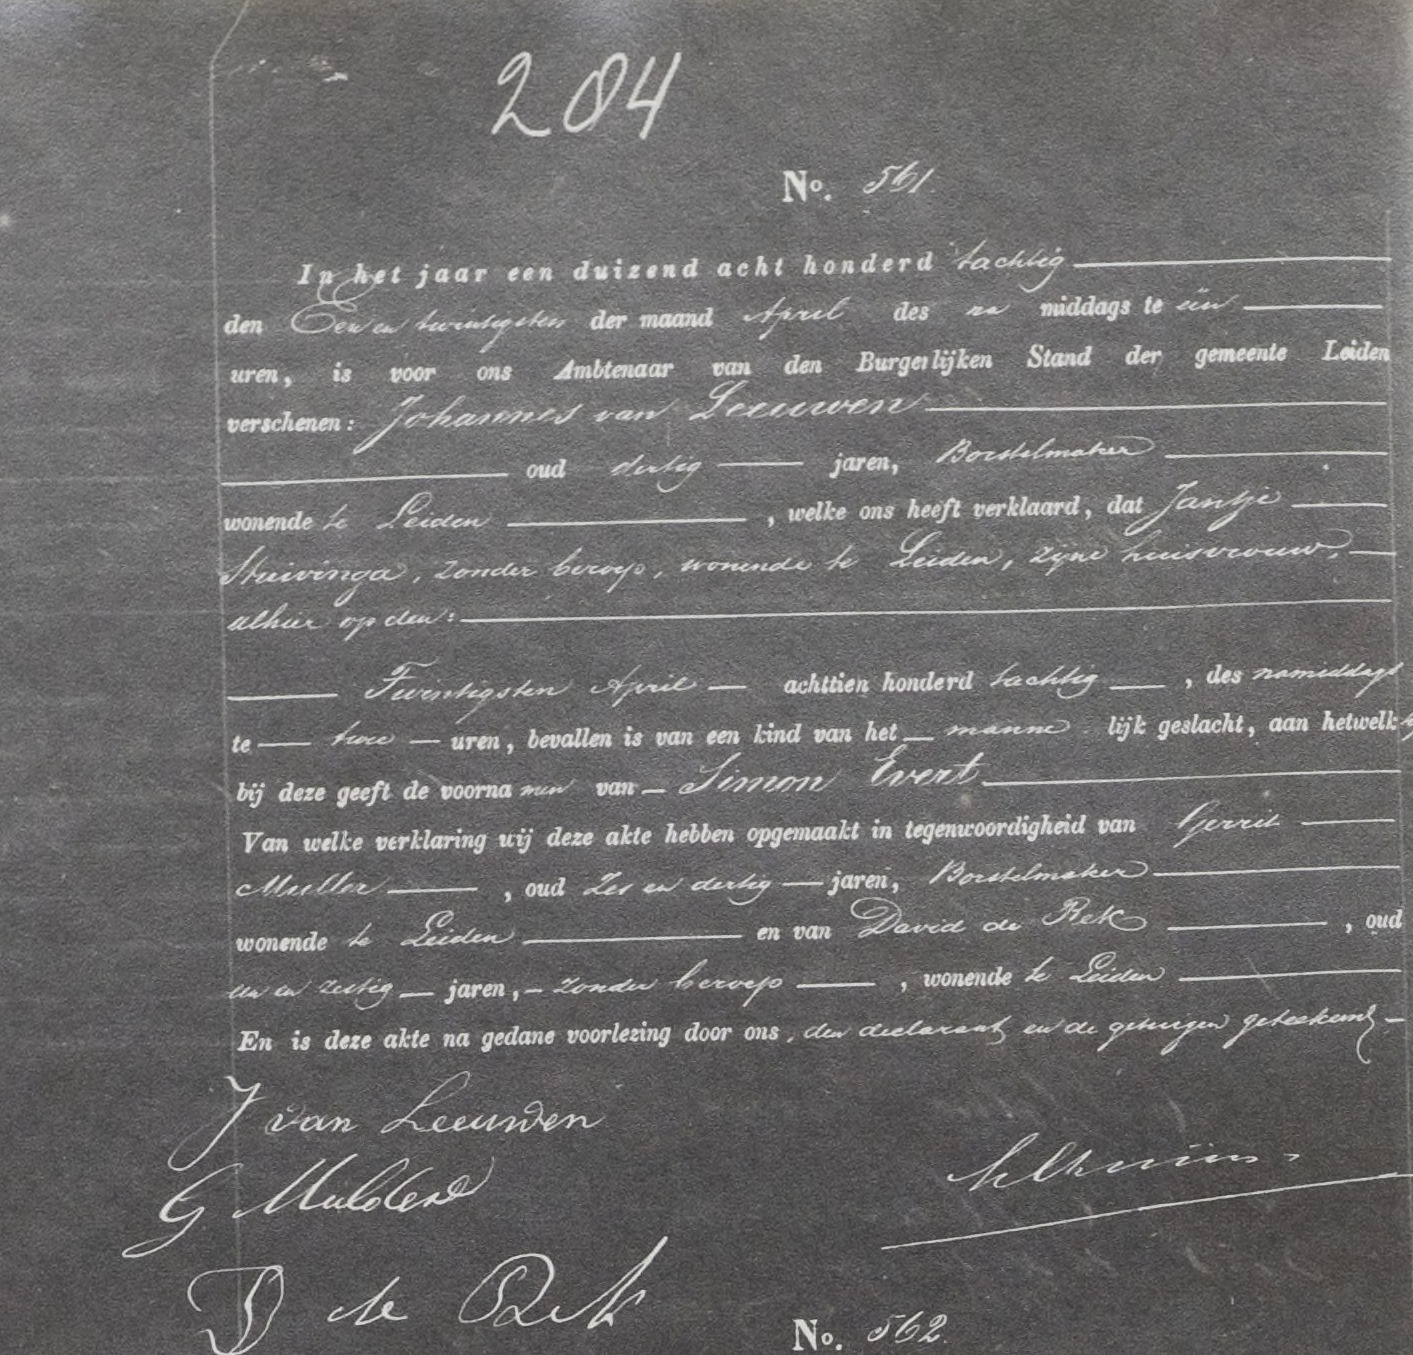 284
No. 561.
In het jaar een duizend acht honderd tachtig
den Een en twintigsten der maand April des na middags te één
uren, is voor ons Ambtenaar van den Burgerlijken Stand der gemeente Leiden
verschenen: Johannes van Leeuwen
oud dertig jaren, Borstelmaker
wonende te Leiden , welke ons heeft verklaard, dat Jantje
Stuivinga, zonder beroep, wonende te Leiden, zijne huisvrouw,
alhier op den:
Twintigsten April achttien honderd tachtig , des namiddags
te twee uren, bevallen is van een kind van het manne lijk geslacht, aan hetwelk hij
bij deze geeft de voorna men van Simon Evert
Van welke verklaring wij deze akte hebben opgemaakt in tegenwoordigheid van Gerrit
Mulder , oud Zes en dertig jaren, Borstelmaker
wonende te Leiden en van David de Rek , oud
en zestig jaren, zonder beroep , wonende te Leiden
En is deze akte na gedane voorlezing door ons, den declarant en de getuigen geteekend
J van Leeuwen
G Mulder
D de Rek
No. 562.